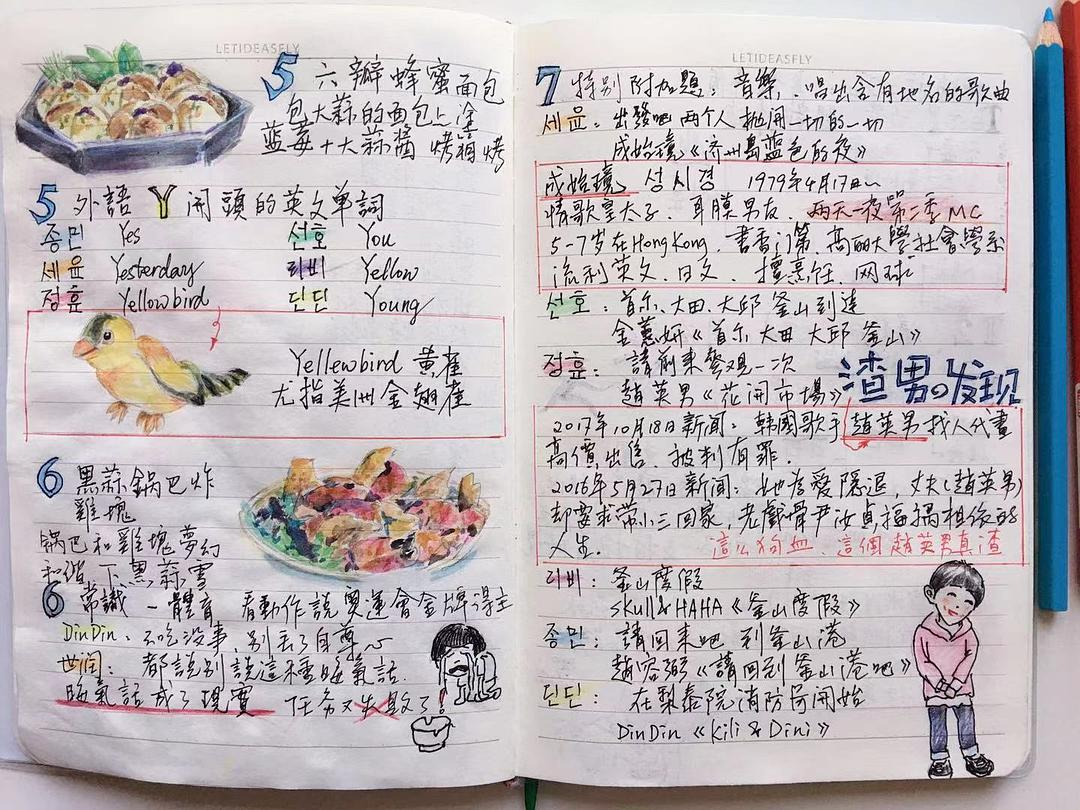 LETIDEASFLY
5 六瓣蜂蜜面包
包大蒜的面包上涂
蓝莓+大蒜酱 烤箱烤
5 外語 Y 開頭的英文单詞
종민 Yes
선호 You
세윤 Yesterday
라비 Yellow
정훈 Yellowbird
딘딘 Young
Yellowbird 黄雀
尤指美洲金翅雀
6 黑蒜锅巴炸
雞塊
锅巴和雞塊夢幻
和谐 下黑蒜雪
6 常識 - 體育 看動作説奥運會金牌得主
DinDin: 不吃没事, 别丢了自尊心
世润: 都説别説這種晦氣話.
晦氣話成了现實 任务又失敗了!
LETIDEASFLY
7 特别附加題: 音樂. 唱出含有地名的歌曲
세윤: 出發吧 两个人抛開一切的一切
成始璄《济州島蓝色的夜》
成始璄 성시경 1979年4月17日~
情歌皇太子. 耳膜男友. 两天一夜第二季MC
5-7岁在HongKong. 書香门第. 高丽大學社會學系
流利英文. 日文. 擅烹饪. 网球
선호: 首尔. 大田. 大邱 釜山到達
金蕙妍《首尔 大田 大邱 釜山》
정훈: 請前来參观一次
趙英男《花開市場》
渣男の发现
2017年10月18日新闻: 韩國歌手趙英男找人代畫
高價出售. 被判有罪.
2016年5月27日新闻: 她為愛隱退, 丈夫(趙英男)
却要求带小三回家, 老戲骨尹汝貞福禍相依的
人生. 這么狗血. 這個趙英男真渣
라비: 釜山度假
Skull&HAHA《釜山度假》
종민: 請回来吧 到釜山港
趙容弼《請回到釜山港吧》
딘딘: 在梨泰院消防局開始
DinDin《Kili & Dini》